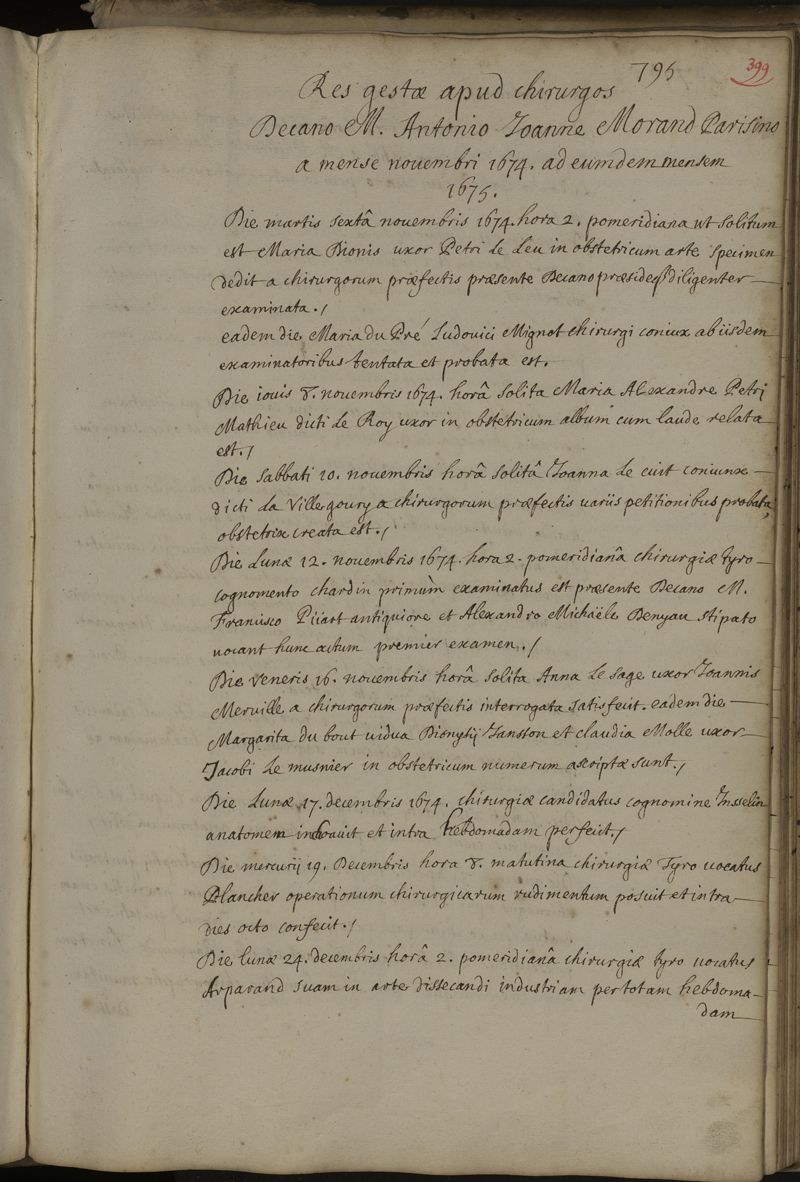 795
399
Res gestæ apud chirurgos
Decano M. Antonio Ioanne Morand Parisino
a mense novembri 1674. ad eumdem mensem
1675.
Die martis sextâ novembris 1674. hora 2. pomeridiana ut solitum
est Maria Dionis uxor Petri Le Leu in obstetricum arte specimen
dedit a chirurgorum præfectis præsente Decano præsideq diligenter
examinata./
eadem die Maria du Pré Ludovici Mignot chirurgi coniux ab iisdem
examinatoribus tentata et probata est.
Die iovis 8. novembris 1674. horâ solita Maria Alexandre Petri
Mathieu dicti Le Roy uxor in obstetricum album cum laude relata
est./
Die sabbati 10. novembris horâ solitâ Ioanna Le cuit coniunx
dicti La Ville goury a chirurgorum præfectis variis petitionibus probata,
obstetrix creata est./
Die Lunæ 12. novembris 1674. hora 2. pomeridianâ chirurgiæ tyro
cognomento chardin primùm examinatus est præsente Decano M.
Francisco Piiart antiquiore et Alexandro Michaële Denyau stipato
vocant hunc actum premier examen./
Die Veneris 16. novembris horâ solita Anna Le Sage uxor Ioannis
Merville a chirurgorum præfectis interrogata satisfecit. eadem die
Margarita du bout vidua Dionysij Iansson et claudia Molle uxor
Jacobi Le musnier in obstetricum numerum ascriptæ sunt./
Die Lunæ 17. decembris 1674. chirurgiæ candidatus cognomine Insselin
anatomem inchoavit et intra hebdomadam perfecit./
Die mercurij 19. Decembris hora 8. matutina chirurgiæ Tyro vocatus
Plancher operationum chirurgicarum rudimentum posuit et intra
dies octo confecit./
Die lunæ 24. decembris horâ 2. pomeridianâ chirurgiæ tyro vocatus
Arparand suam in arte dissecandi industriam per totam hebdoma-
dam